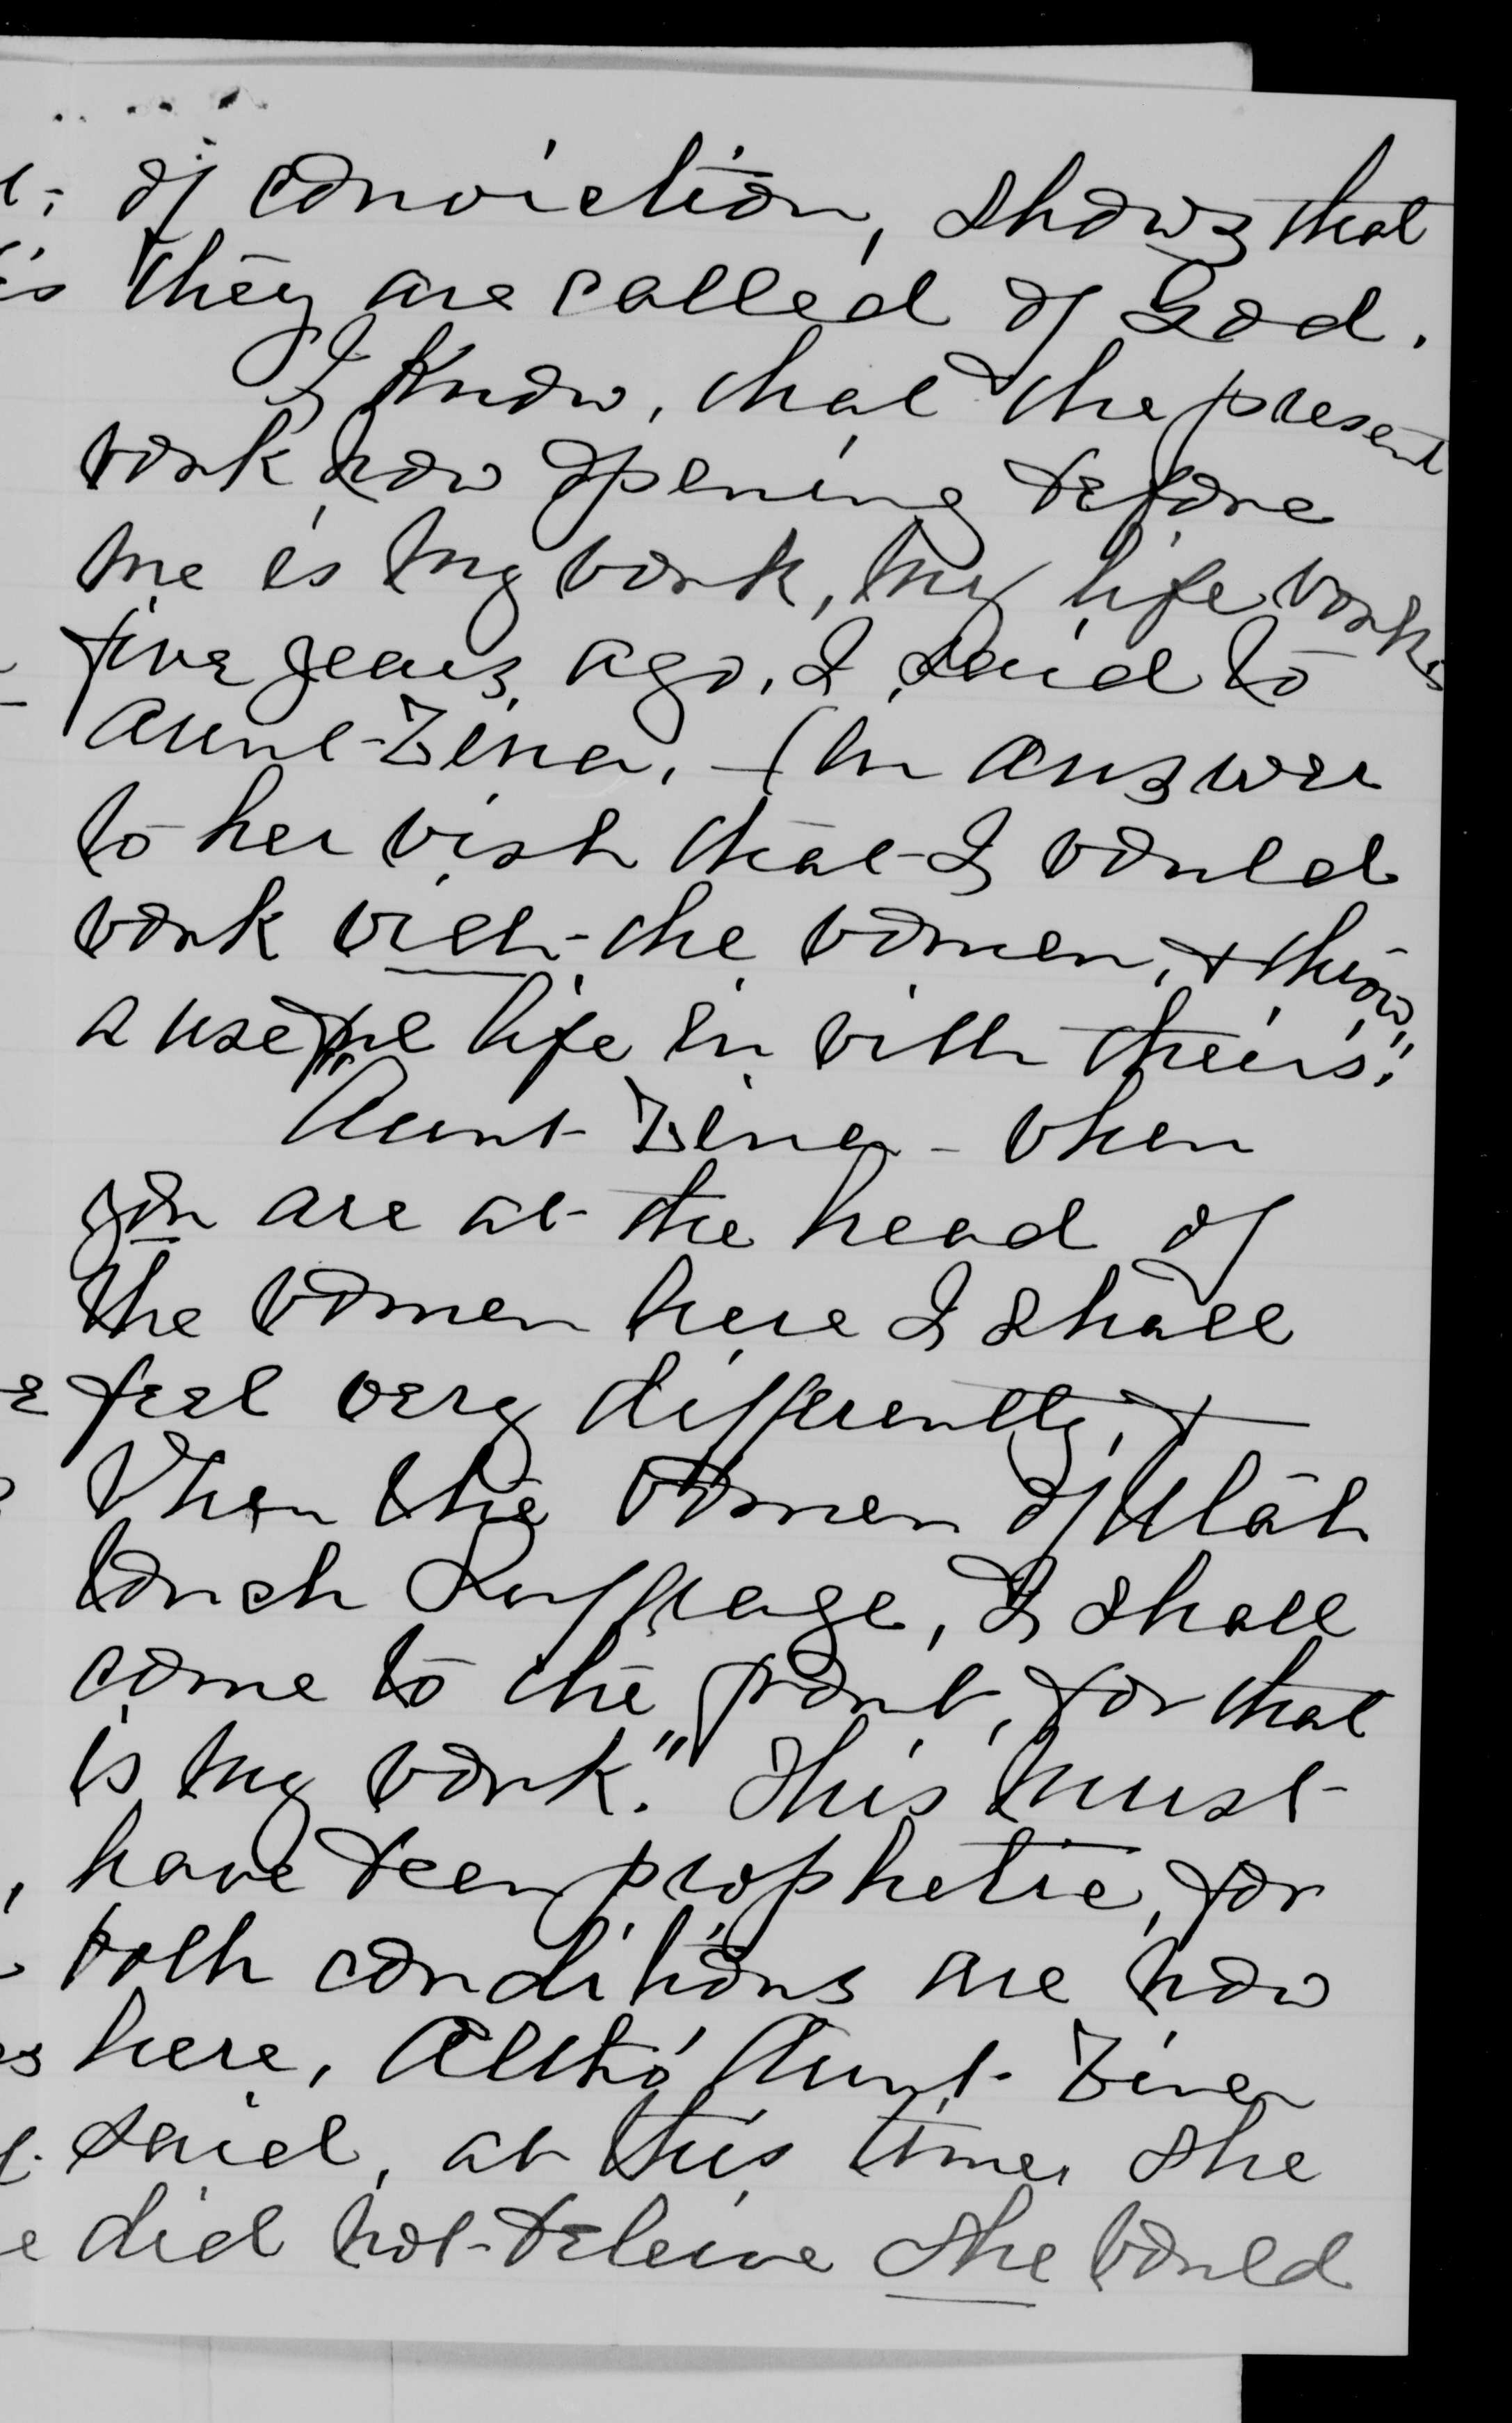 of conviction, shows that
they are called of God.
I know, that the present
work now opening before
me is my work, my life work,
five years, ago, I, said to
Aunt Zina, - (In answer
to her wish that I would
work with the women, & throw
a useful life in with theirs."
"Aunt Zina - when
you are at the head of
the women here I shall
feel very differently, &
When the women of Utah
touch Suffrage, I shall
come to the front, for that
is my work." This must
have been prophetic, for
both conditions are now
here, Altho' Aunt Zina
said, at this time, she
did not beleive she would